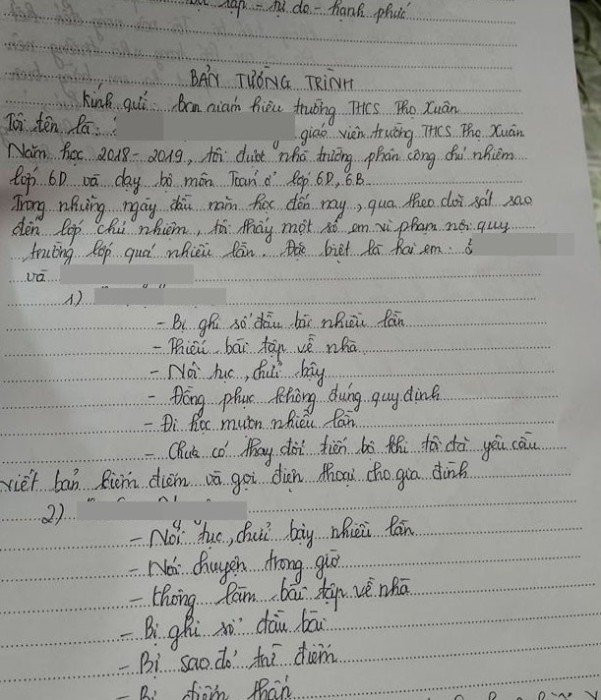 lập - tự do - hạnh phúc
BẢN TƯỜNG TRÌNH
Kính gửi: Ban giám hiệu trường THCS Thọ Xuân
Tôi tên là: giáo viên trường THCS Thọ Xuân
Năm học 2018 - 2019, tôi được nhà trường phân công chủ nhiệm
lớp 6D và dạy bộ môn Toán ở lớp 6D, 6B.
Trong những ngày đầu năm học đến nay, qua theo dõi sát sao
đến lớp chủ nhiệm, tôi thấy một số em vi phạm nội quy
trường lớp quá nhiều lần. Đặc biệt là hai em:
và
1)
- Bị ghi sổ đầu bài nhiều lần
- Thiếu bài tập về nhà
- Nói tục, chửi bậy
- Đồng phục không đúng quy định
- Đi học muộn nhiều lần
- Chưa có thay đổi tiến bộ khi tôi đã yêu cầu
viết bản kiểm điểm và gọi điện thoại cho gia đình
2)
- Nói tục, chửi bậy nhiều lần
- Nói chuyện trong giờ
- không làm bài tập về nhà
- Bị ghi sổ đầu bài
- Bị sao đỏ trừ điểm
- Bị điểm thấp